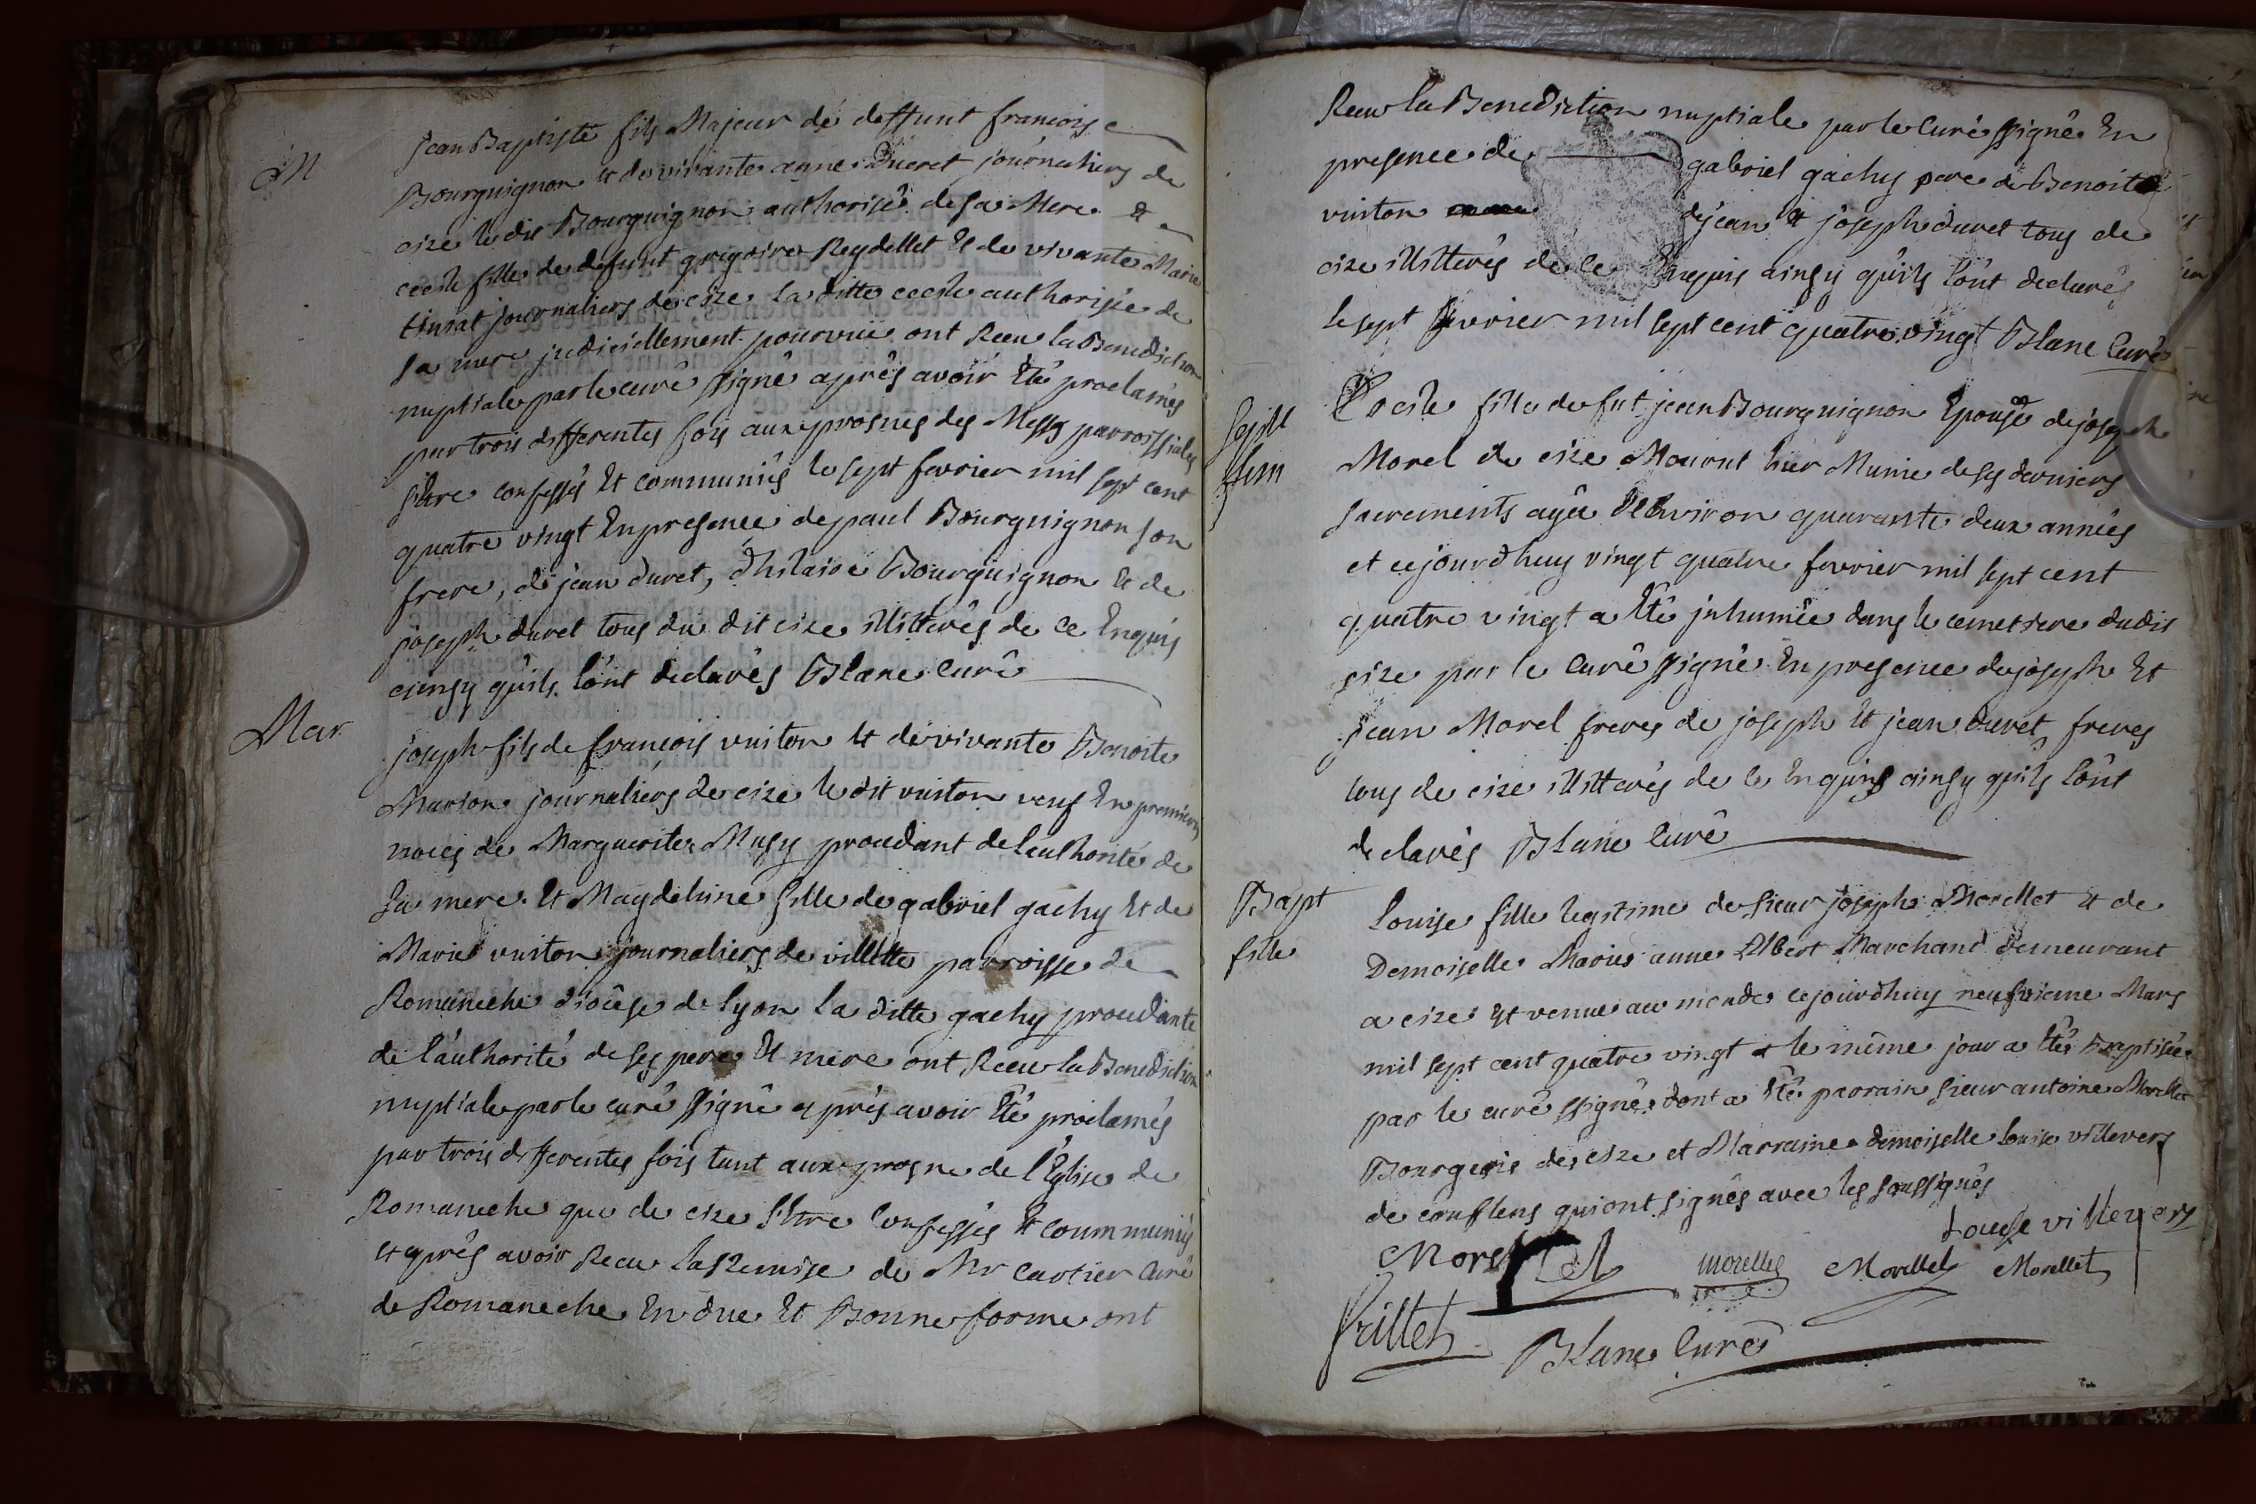 M
jean Baptiste fils Majeur de deffunt francois
Bourguignon et de vivante anne Duret journaliers de
cize le dit Bourguignon authorisé de sa Mere et
cecile fille de defunt gregoire Reydellet et de vivante Marie
tinrat journaliers de cize la ditte cecile authorisée de
sa mere judiciellement pourvuë ont Receu la Benediction
nuptiale par le curé ssigné après avoir Eté proclamés
par trois differentes fois aux prosnes des Messes parroissiales
s'être confessés Et communiés le sept fevrier mil sept cent
quatre vingt En presence de paul Bourguignon son
frere, de jean duret, d'hilaire Bourguignon Et de
joseph duret tous du dit cize illitterés de ce Enquis
ainsy qu'ils l'ont declarés Blanc Curé
Mar
joseph fils de francois vuiton et de vivante Benoite
Marion journaliers de cize le dit vuiton veuf En premieres
noces de Marguerite Musy procedant de l'authorité de
sa mere. Et Magdelaine fille de gabriel gachy Et de
Marie vuiton journaliers de villette parroisse de
Romaneche diocèse de lyon la ditte gachy procedante
de l'authorité de ses pere Et mere ont Receu la Benediction
nuptiale par le curé ssigné après avoir Eté proclamés
par trois differentes fois tant aux prosne de l'Eglise de
Romaneche que de cize s'être Confessés Et communiés
et après avoir Receu la Remise de Mr Cartier Curé
de Romaneche En due Et Bonne forme ont
Receu la Benediction nuptiale par le Curé ssigné En
presence de gabriel gachy pere de Benoit
vuiton de jean et joseph duret tous de
cize illitterés de ce Enquis ainsy qu'ils l'ont declarés
le sept fevrier mil sept cent quatre vingt Blanc Curé
Sepult
fem
Cecile fille de fut jean Bourguignon Epouse de joseph
Morel de cize Mourut hier Munie de ses derniers
sacrements agée d'Environ quarante deux années
et cejourdhuy vingt quatre fevrier mil sept cent
quatre vingt a Eté inhumée dans le cemetiere dudit
cize par le Curé ssigné En presence de joseph Et
jean Morel freres de joseph Et jean duret freres
tous de cize illitterés de ce Enquis ainsy qu'ils l'ont
declarés Blanc Curé
Bapt
fille
Louise fille legitime de sieur joseph Morellet et de
Demoiselle Marie anne Albert Marchand demeurant
a cize Est venue au monde cejourdhuy neufvieme Mars
mil sept cent quatre vingt et le même jour a Eté Baptisée
par le curé ssigné dont a Eté parrain sieur antoine Morellet
Bourgeois de cize et Marraine demoiselle Louise villevers
de conflens qui ont signés avec les soussignés
Louise villevers
Morellet morellet Morellet Morellet
frillet Blanc Curé